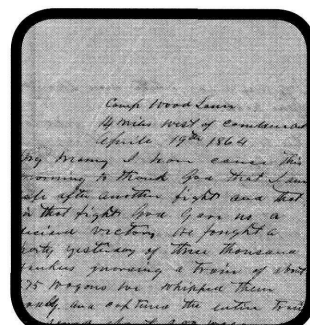 Camp Wood Lawn
14 miles West of Camden Ark
Aprile 19th 1864
My Mamy I have cause this
morning to thank God that I am
safe after another fight and that
in that fight God Gave us a
decisive victory we fought a
party yesterday of three thousand
yankees guarding a train of about
275 Wagons we whipped them
and captured the entire train